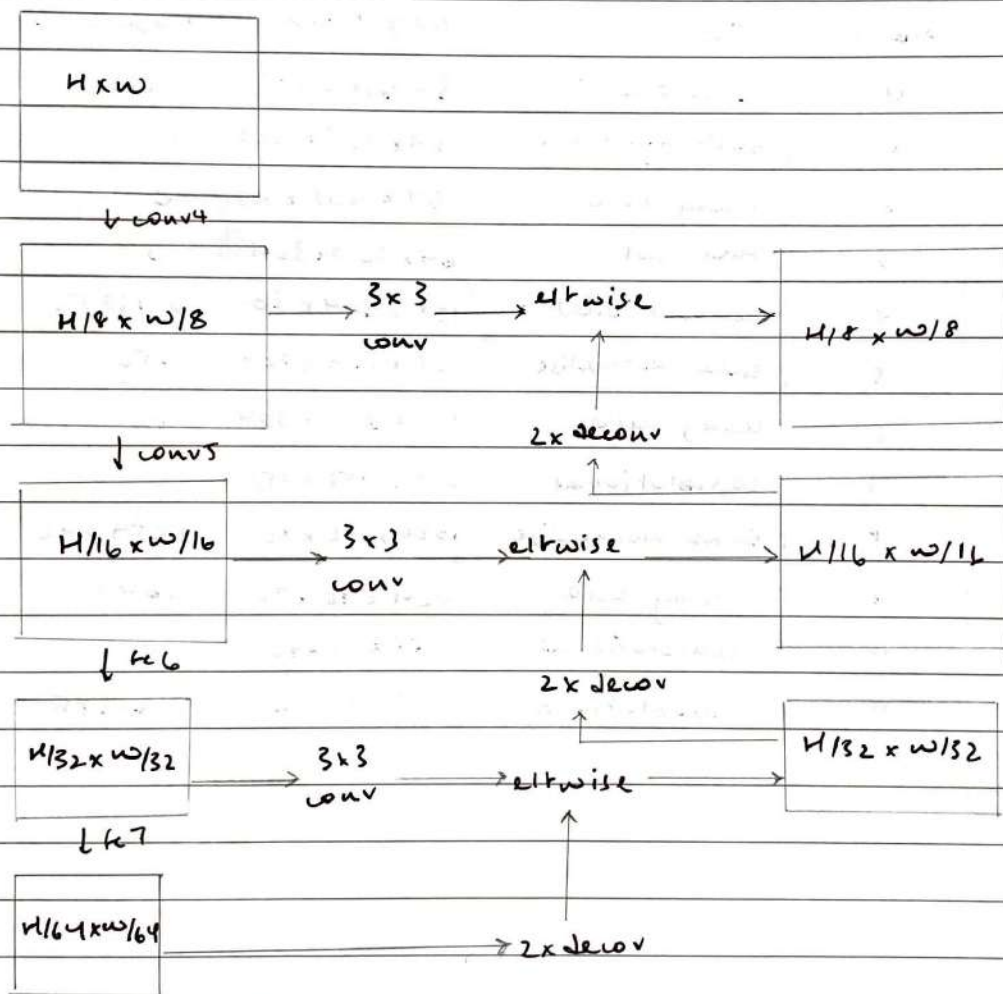 H x W
↓ conv4
H/8 x W/8 → 3 x 3 conv → eltwise → H/8 x W/8
2x deconv
↓ conv5
H/16 x W/16 → 3 x 3 conv → eltwise → H/16 x W/16
↓ fc6
2x decov
H/32 x W/32 → 3x3 conv → eltwise → H/32 x W/32
↓ fc7
H/64 x W/64 → 2x decov